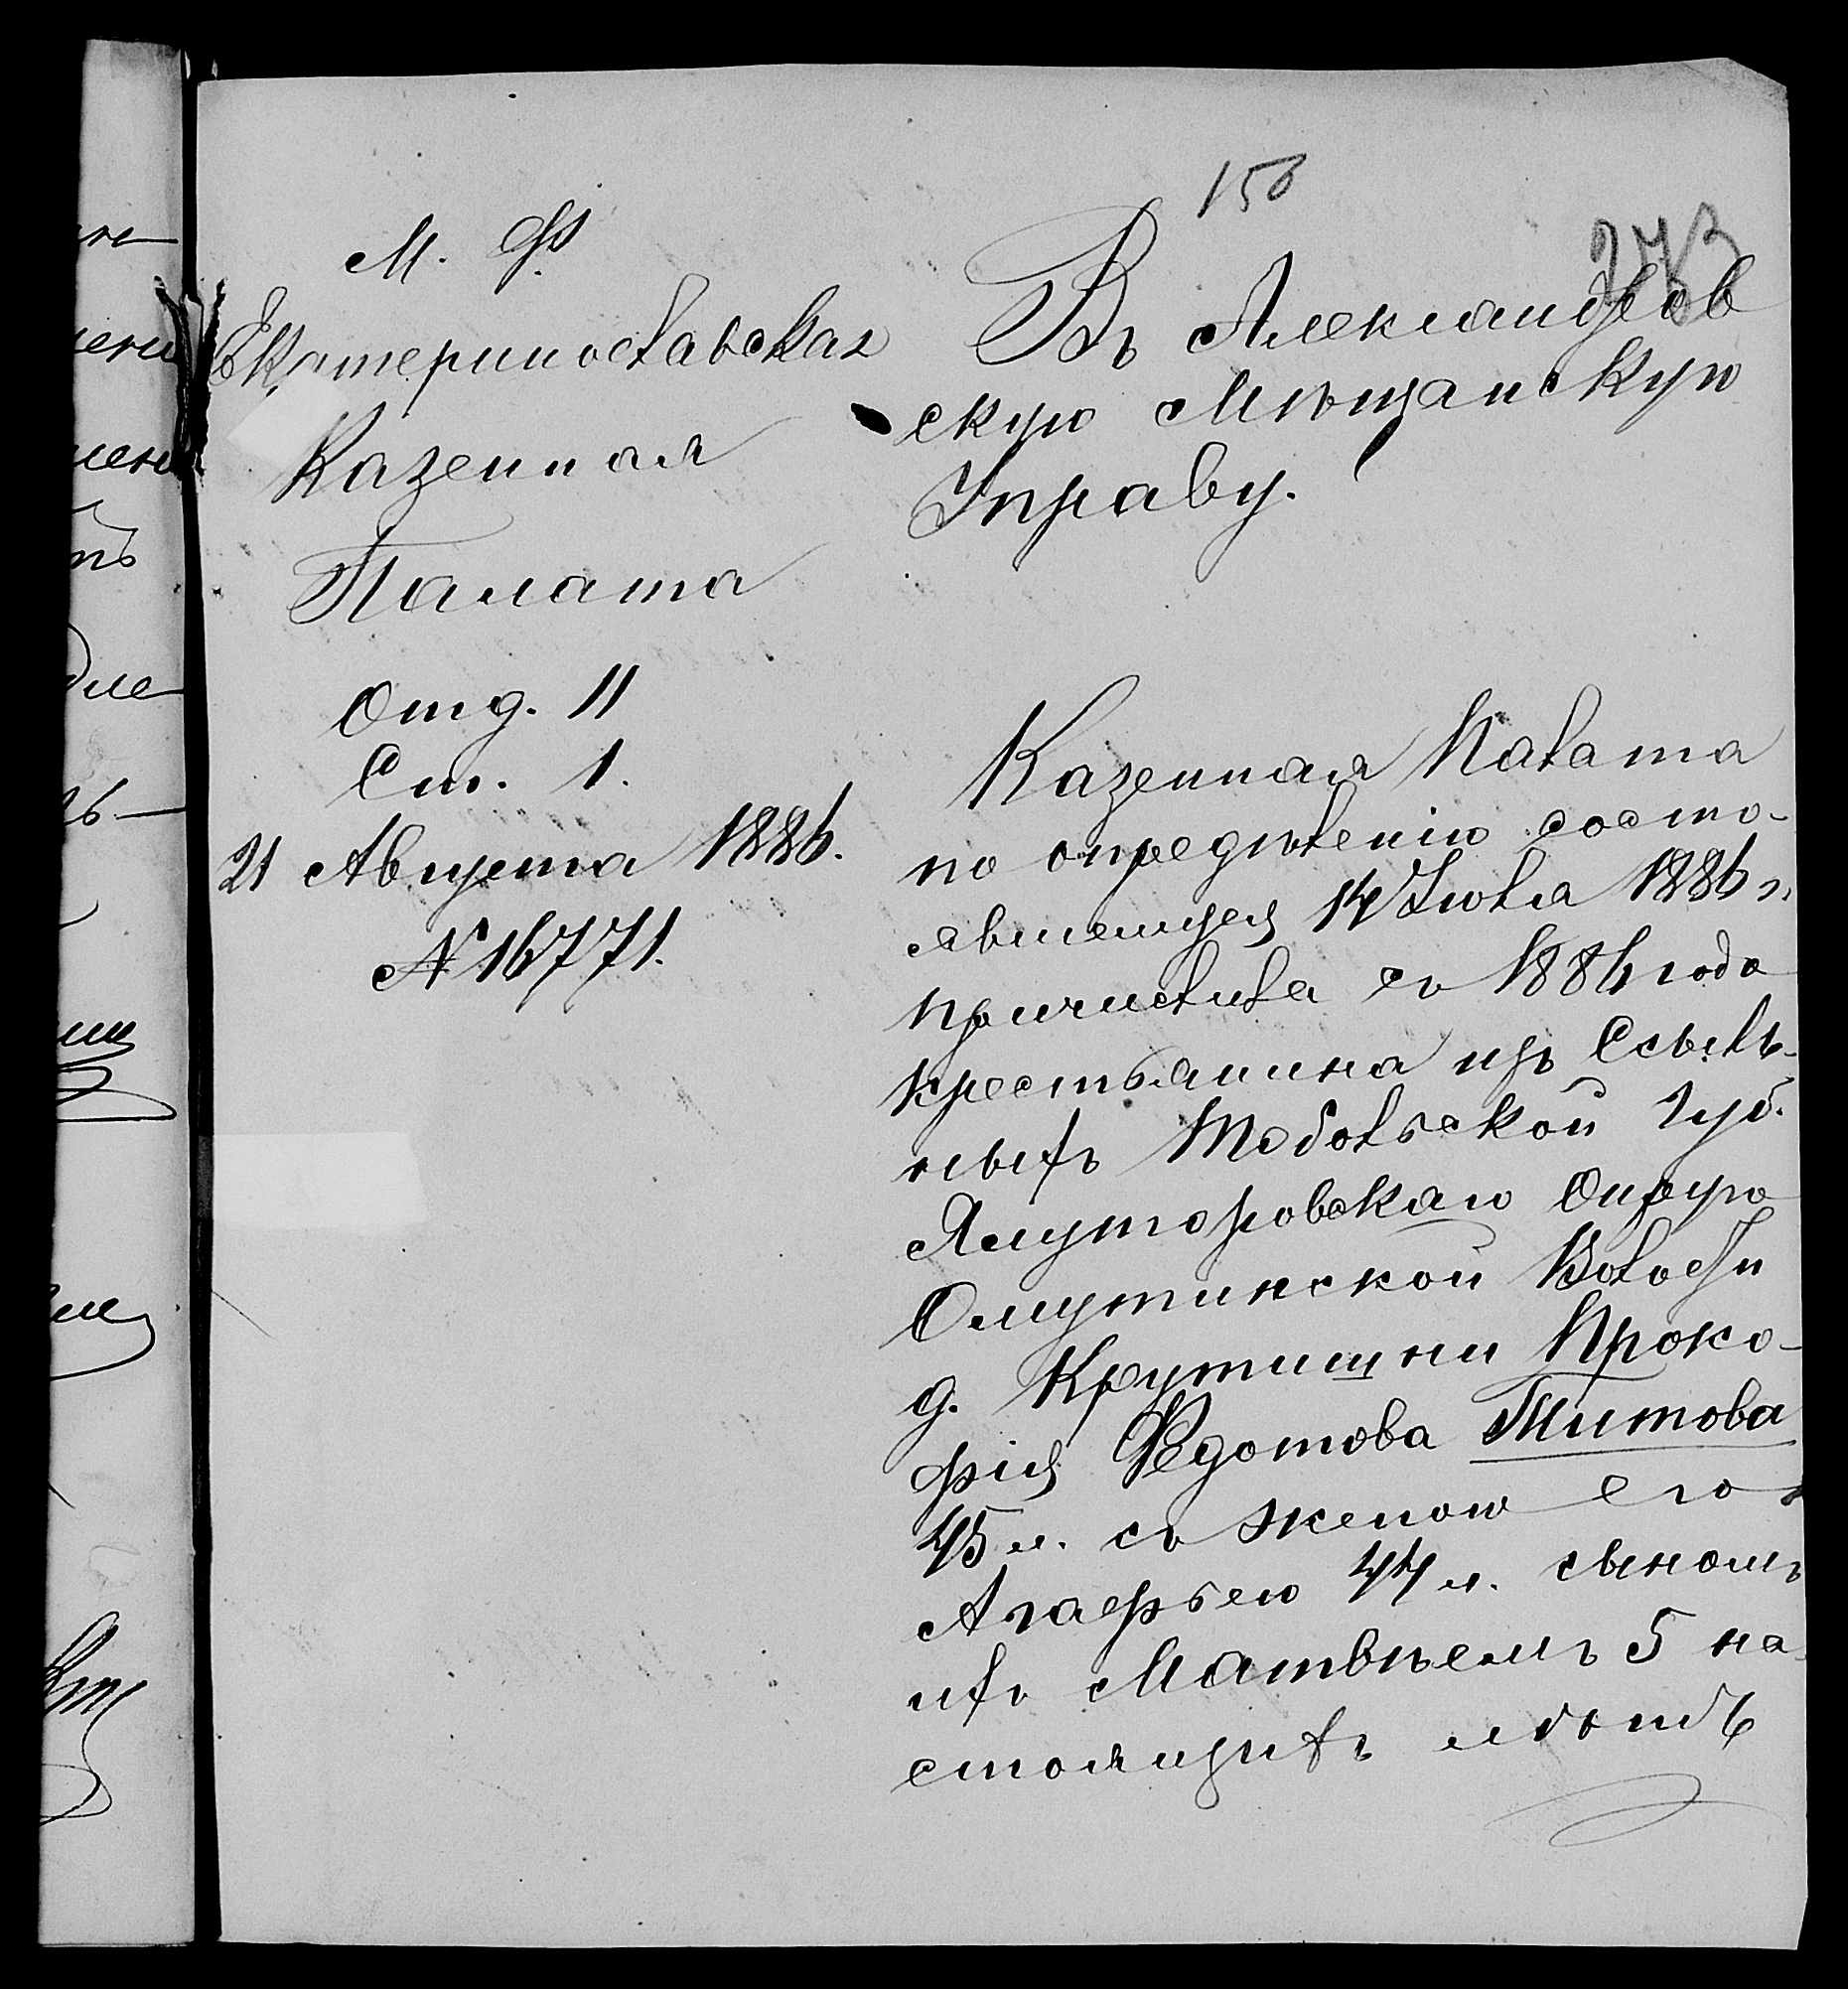 150
273
М. Ф.
Екатеринославская
Казенная
Палата
Отд. II
Ст. 1.
21 Августа 1886.
№ 16771.
Въ Александров
скую Мѣщанскую
Управу.
Казенная Палата
по опредѣленію состо-
явшемуся 14 Іюля 1886 г.
причислила съ 1886 года
крестьянина изъ Ссыль-
ныхъ Тобольской губ.
Ялуторовскаго Округа
Омутинской Волости
д. Крутишни Проко-
фія Федотова Титова
45 л. съ женою его
Агафьею 44 л. сыномъ
ихъ Матвѣемъ 5 на
стоящихъ лѣтъ